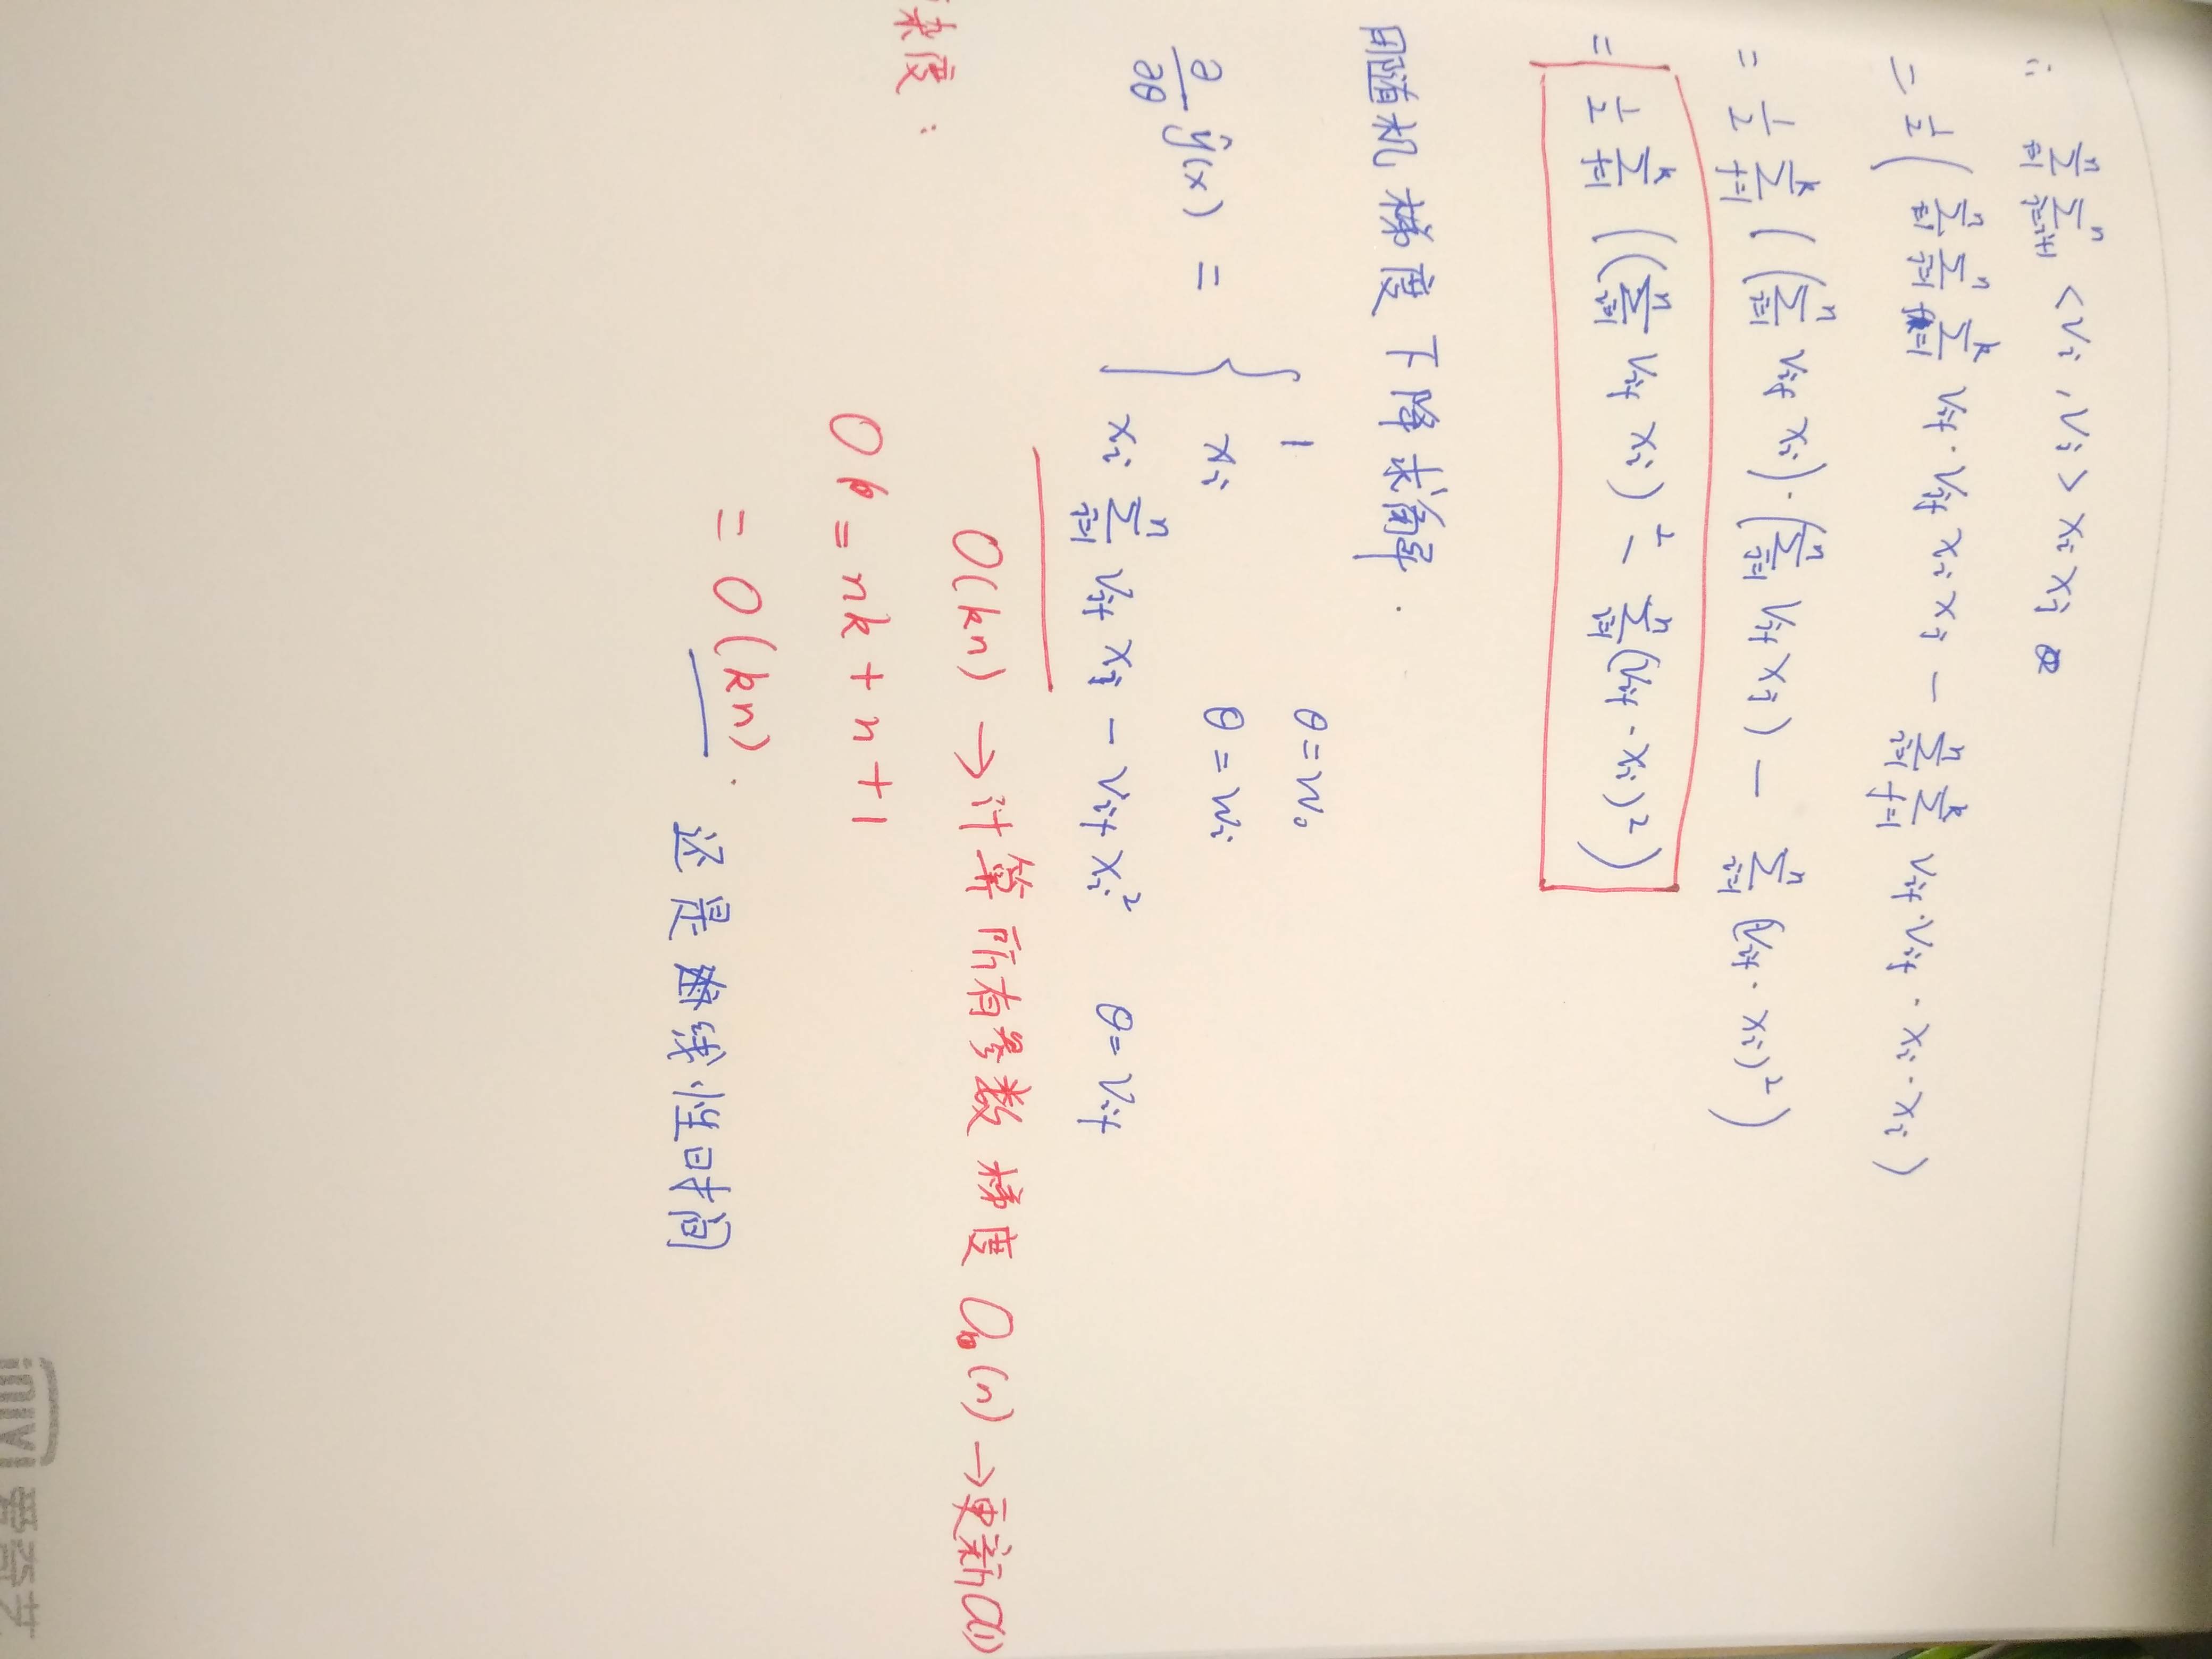 ∴ \sum_{i=1}^{n} \sum_{j=i+1}^{n} <v_i , v_j> x_i x_j
= \frac{1}{2} ( \sum_{i=1}^{n} \sum_{j=1}^{n} \sum_{f=1}^{k} v_{if} · v_{jf} x_i x_j − \sum_{i=1}^{n} \sum_{f=1}^{k} v_{if} · v_{if} · x_i · x_i )
= \frac{1}{2} \sum_{f=1}^{k} ( ( \sum_{i=1}^{n} v_{if} x_i ) · ( \sum_{j=1}^{n} v_{jf} x_j ) − \sum_{i=1}^{n} (v_{if} · x_i)^2 )
= \frac{1}{2} \sum_{f=1}^{k} ( ( \sum_{i=1}^{n} v_{if} x_i )^2 − \sum_{i=1}^{n} (v_{if} · x_i)^2 )
用随机梯度下降求解.
\frac{∂}{∂θ} ŷ(x) = {
1 θ = w_0
x_i θ = w_i
x_i \sum_{j=1}^{n} v_{jf} x_j − v_{if} x_i^2 θ = v_{if}
度:
O(kn) → 计算所有参数梯度 O(n) → 更新 O(1)
O = nk + n + 1
= O(kn). 还是线性时间